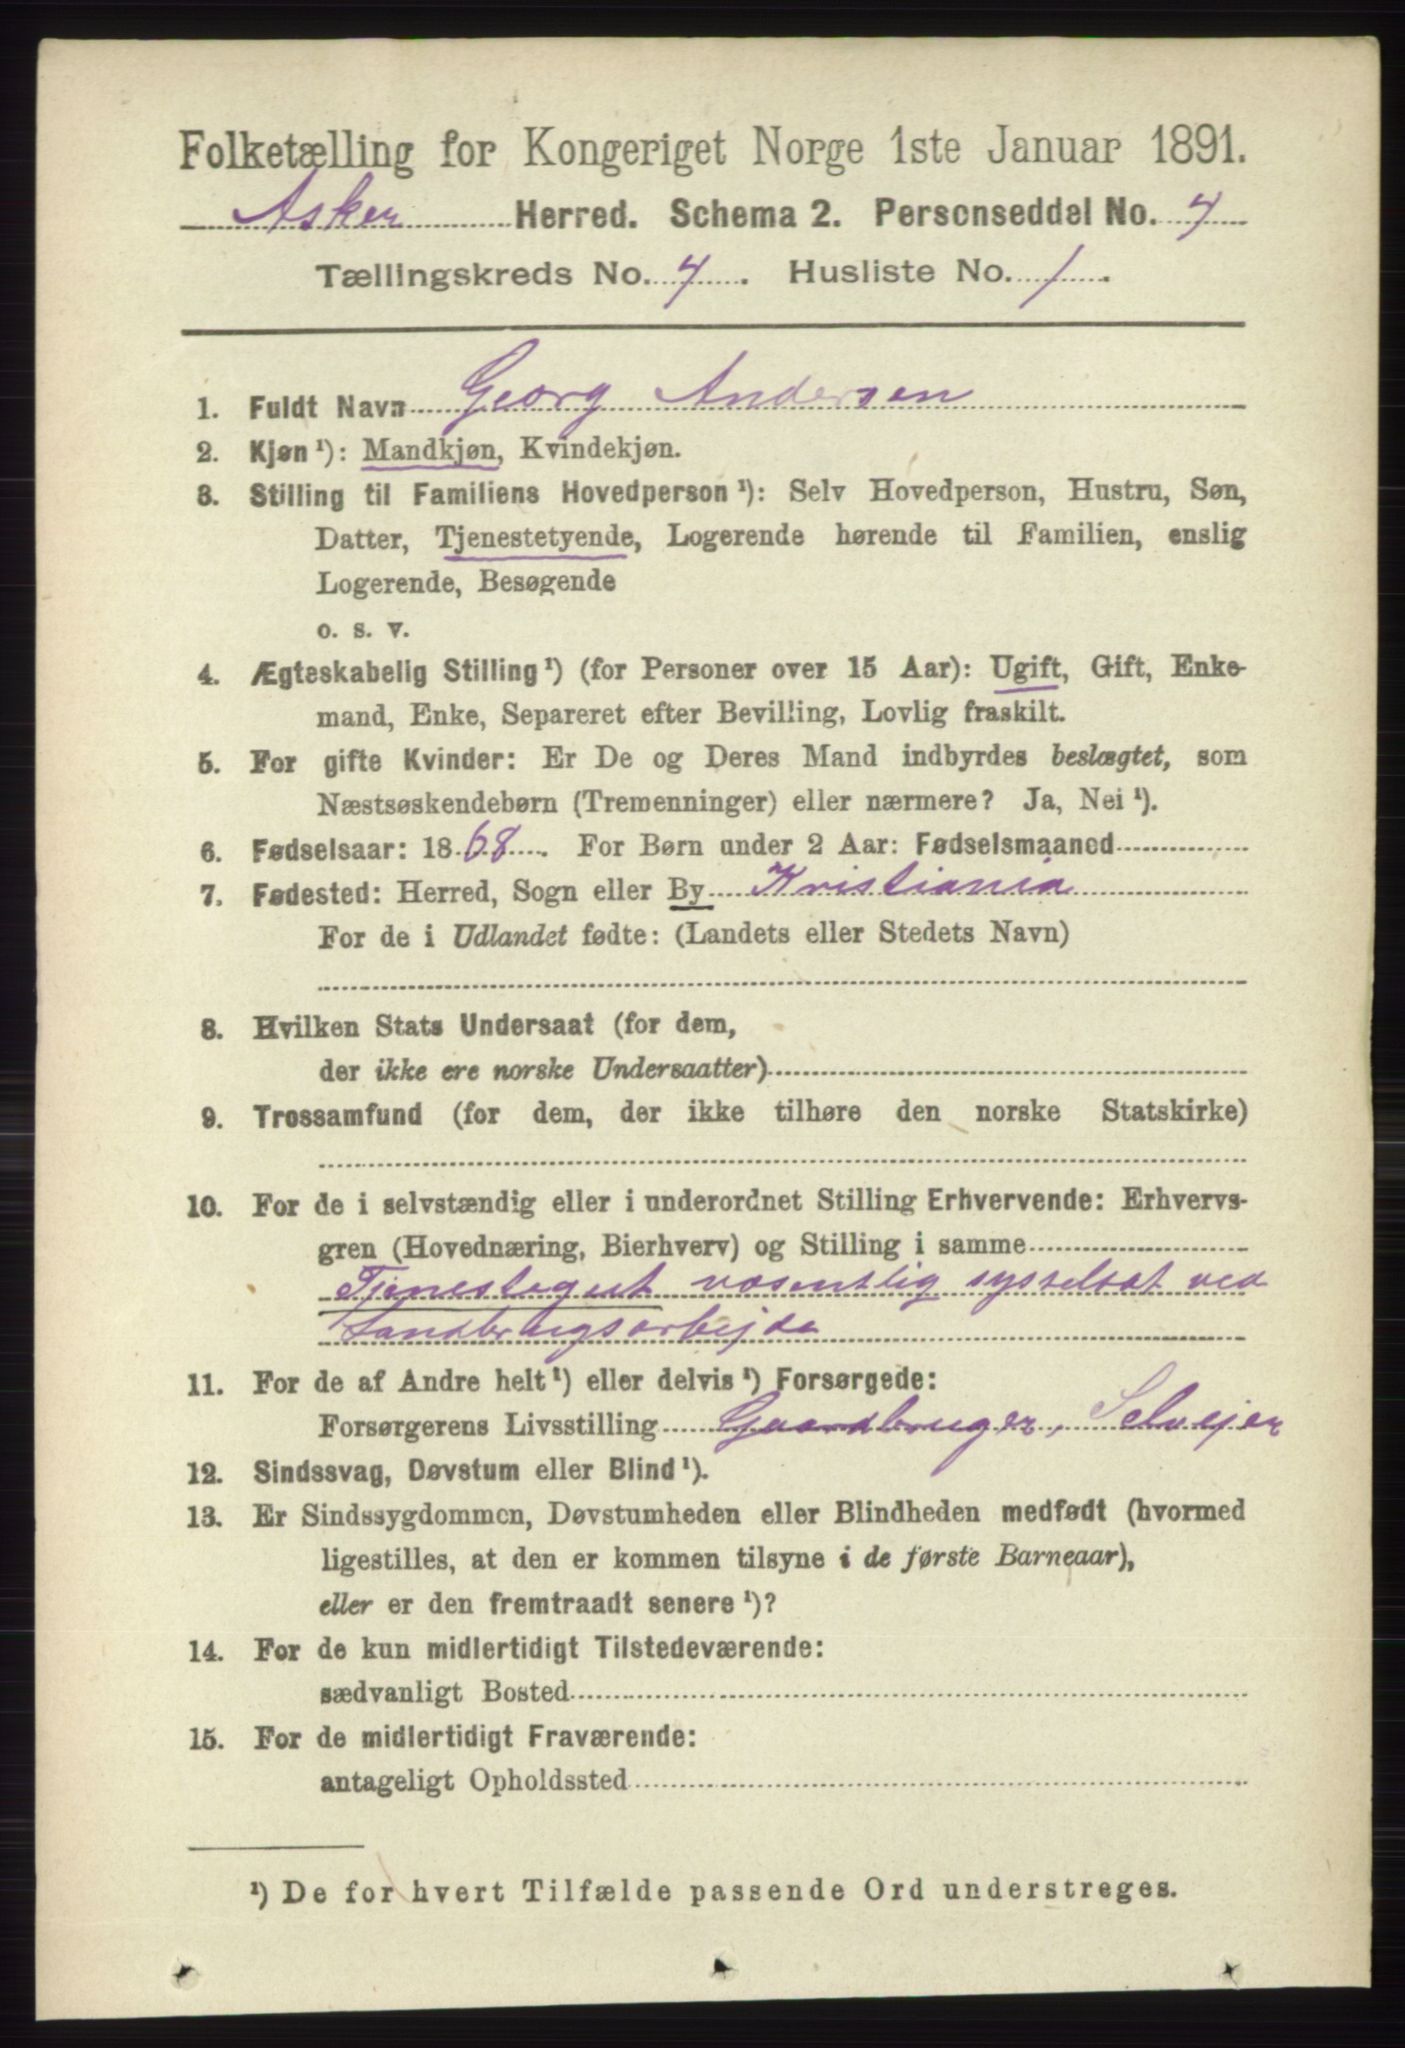 Folketælling for Kongeriget Norge 1ste Januar 1891.
Asker Herred. Schema 2. Personseddel No. 4
Tællingskreds No. 4. Husliste No. 1.
1. Fuldt Navn Georg Andersen
2. Kjøn ¹): Mandkjøn, Kvindekjøn.
3. Stilling til Familiens Hovedperson ¹): Selv Hovedperson, Hustru, Søn,
Datter, Tjenestetyende, Logerende hørende til Familien, enslig
Logerende, Besøgende
o. s. v.
4. Ægteskabelig Stilling ¹) (for Personer over 15 Aar): Ugift, Gift, Enke-
mand, Enke, Separeret efter Bevilling, Lovlig fraskilt.
5. For gifte Kvinder: Er De og Deres Mand indbyrdes beslægtet, som
Næstsøskendebørn (Tremenninger) eller nærmere? Ja, Nei ¹).
6. Fødselsaar: 1868. For Børn under 2 Aar: Fødselsmaaned
7. Fødested: Herred, Sogn eller By Kristiania
For de i Udlandet fødte: (Landets eller Stedets Navn)
8. Hvilken Stats Undersaat (for dem,
der ikke ere norske Undersaatter)
9. Trossamfund (for dem, der ikke tilhøre den norske Statskirke)
10. For de i selvstændig eller i underordnet Stilling Erhvervende: Erhvervs-
gren (Hovednæring, Bierhverv) og Stilling i samme
Tjenestegut væsentlig sysselsat ved
Landbrugsarbejde
11. For de af Andre helt ¹) eller delvis ¹) Forsørgede:
Forsørgerens Livsstilling Gaardbruger, Selvejer
12. Sindssvag, Døvstum eller Blind ¹).
13. Er Sindssygdommen, Døvstumheden eller Blindheden medfødt (hvormed
ligestilles, at den er kommen tilsyne i de første Barneaar),
eller er den fremtraadt senere ¹)?
14. For de kun midlertidigt Tilstedeværende:
sædvanligt Bosted
15. For de midlertidigt Fraværende:
antageligt Opholdssted
¹) De for hvert Tilfælde passende Ord understreges.